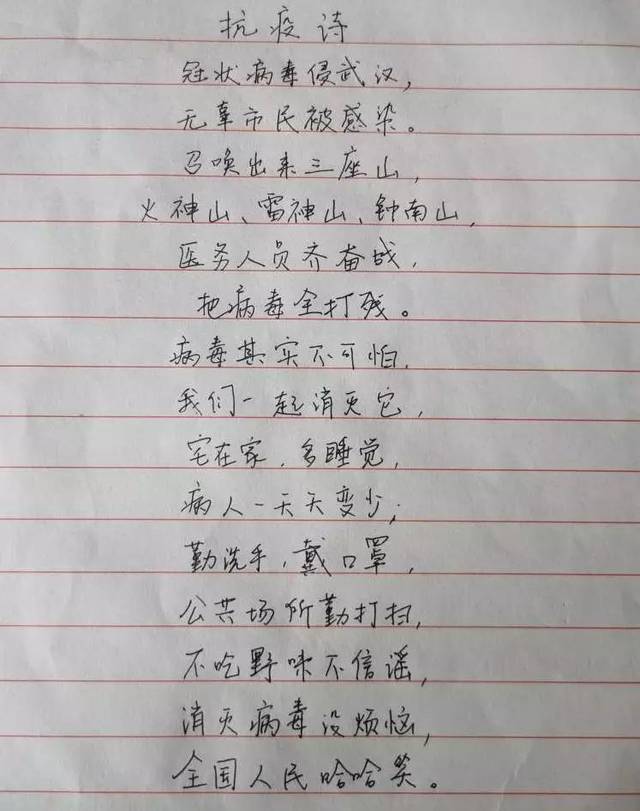 抗疫诗
冠状病毒侵武汉，
无辜市民被感染。
召唤出来三座山，
火神山、雷神山、钟南山，
医务人员齐奋战，
把病毒全打残。
病毒其实不可怕，
我们一起消灭它，
宅在家，多睡觉，
病人一天天变少；
勤洗手，戴口罩，
公共场所勤打扫，
不吃野味不信谣，
消灭病毒没烦恼，
全国人民哈哈笑。